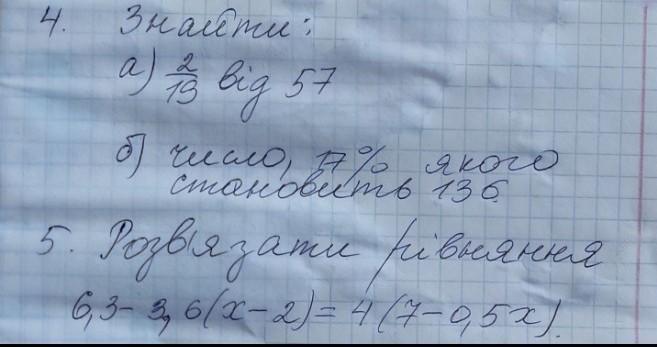 4. Знайти:
а) 2/19 від 57
б) число, 17% якого
становить 136
5. Розв'язати рівняння
6,3 - 3,6(x - 2) = 4(7 - 0,5x).